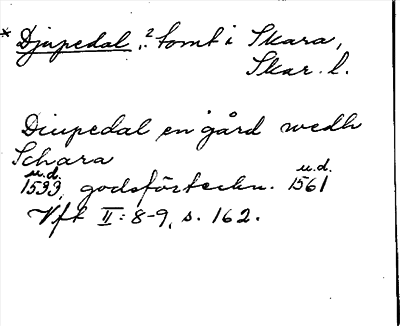 * Djupedal, ? tomt i Skara,
Skar. l.
Diupedal en gård wedh
Schara
u.d. u.d.
1533, godsförteckn. 1561
Vft II: 8-9, s. 162.